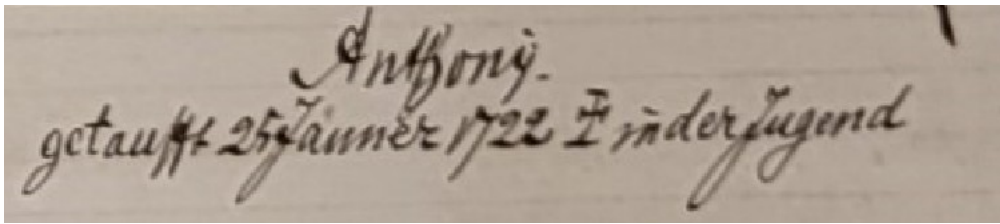 Anthonÿ.
getaufft 25 Jänner 1722 ‡ in der Jugend